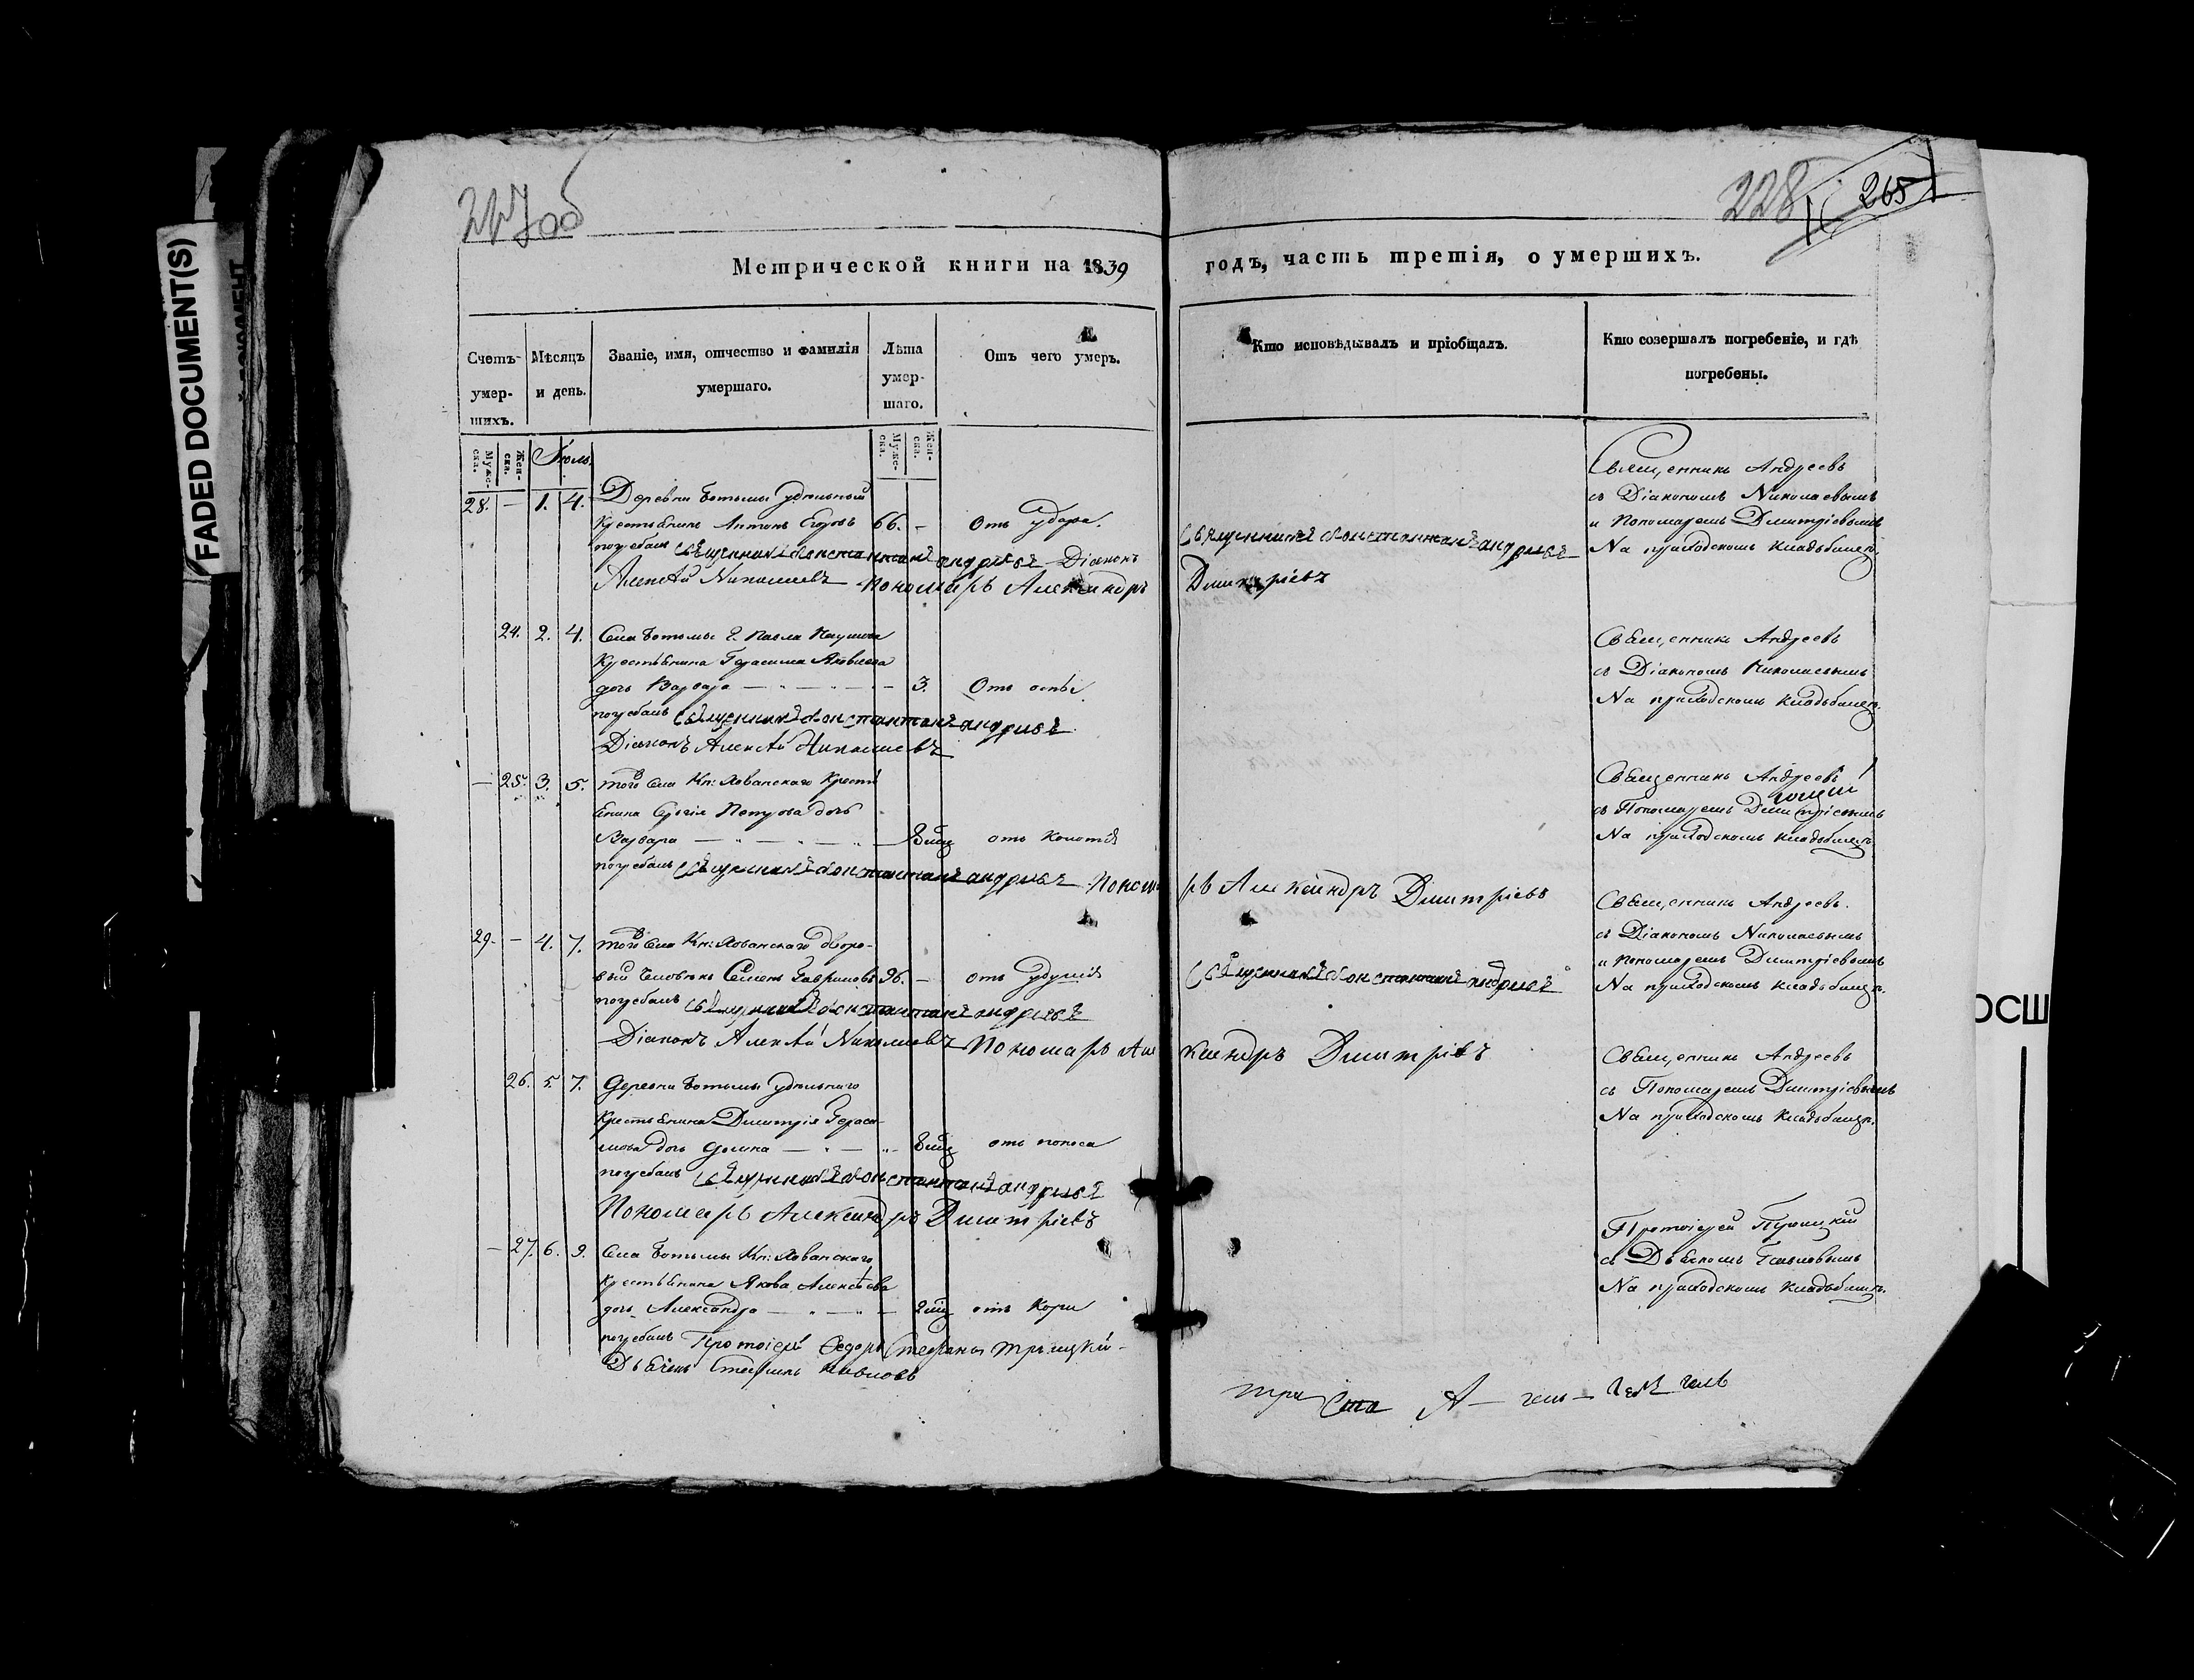 FADED DOCUMENT(S)
227об
228
265
Метрической книги на 1839
годъ, часть третія, о умершихъ.
Счетъ умер-
шихъ.
Мѣсяцъ
и день.
Званіе, имя, отчество и фамилія
умершаго.
Лѣта
умер-
шаго.
Отъ чего умеръ.
Кто исповѣдывалъ и пріобщалъ.
Кто совершалъ погребеніе, и гдѣ
погребены.
Мужес-
ска.
Жен-
ска.
Іюль.
Мужес-
ска.
Жен-
ска.
28. — 1. 4. Деревни Ботьмы удѣльный
крестьянинъ Антонъ Егоровъ 66. — Отъ удара.
погребалъ Священникъ Константинъ Андреевъ Діаконъ
Алексѣй Николаевъ Пономарь Александръ
Священникъ Константинъ Андреевъ
Дмитріевъ
Священникъ Андреевъ
съ Діакономъ Николаевымъ
и Пономаремъ Дмитріевымъ
На приходскомъ кладбищѣ.
24. 2. 4. Села Ботьмы Г. Павла Наумова
крестьянина Герасима Яковлева
дочь Варвара — 3. Отъ оспы.
погребалъ Священникъ Константинъ Андреевъ
Діаконъ Алексѣй Николаевъ
Священникъ Андреевъ
съ Діакономъ Николаевымъ
На приходскомъ кладбищѣ.
— 25. 3. 5. того села Кн: Хованскаго крестья-
янина Сергія Петрова дочь
Варвара — отъ колотья
погребалъ Священникъ Константинъ Андреевъ Пономарь Александръ Дмитріевъ
Священникъ Андреевъ
съ Пономаремъ Дмитріевымъ
На приходскомъ кладбищѣ.
29. — 4. 7. того села Кн: Хованскаго дворо-
вый человѣкъ Семенъ Гавриловъ 96. — отъ удушья
погребалъ Священникъ Константинъ Андреевъ
Діаконъ Алексѣй Николаевъ Пономарь Александръ Дмитріевъ
Священникъ Константинъ Андреевъ
Священникъ Андреевъ.
съ Діакономъ Николаевымъ
и Пономаремъ Дмитріевымъ
На приходскомъ кладбищѣ.
26. 5. 7. Деревни Ботьмы удѣльнаго
крестьянина Димитрія Гераси-
мова дочь — отъ поноса
погребалъ Священникъ Константинъ Андреевъ
Пономарь Александръ Дмитріевъ
Священникъ Андреевъ
съ Пономаремъ Дмитріевымъ
На приходскомъ кладбищѣ.
— 27. 6. 9. Села Ботьмы Кн: Хованскаго
крестьянина Якова Алексѣева
дочь Александра — отъ кори
погребалъ Протоіерей Ѳедоръ Стефановъ Троицкій
Дьячекъ Стефанъ Павловъ
Протоіерей Троицкій
съ Дьячкомъ Павловымъ
На приходскомъ кладбищѣ.